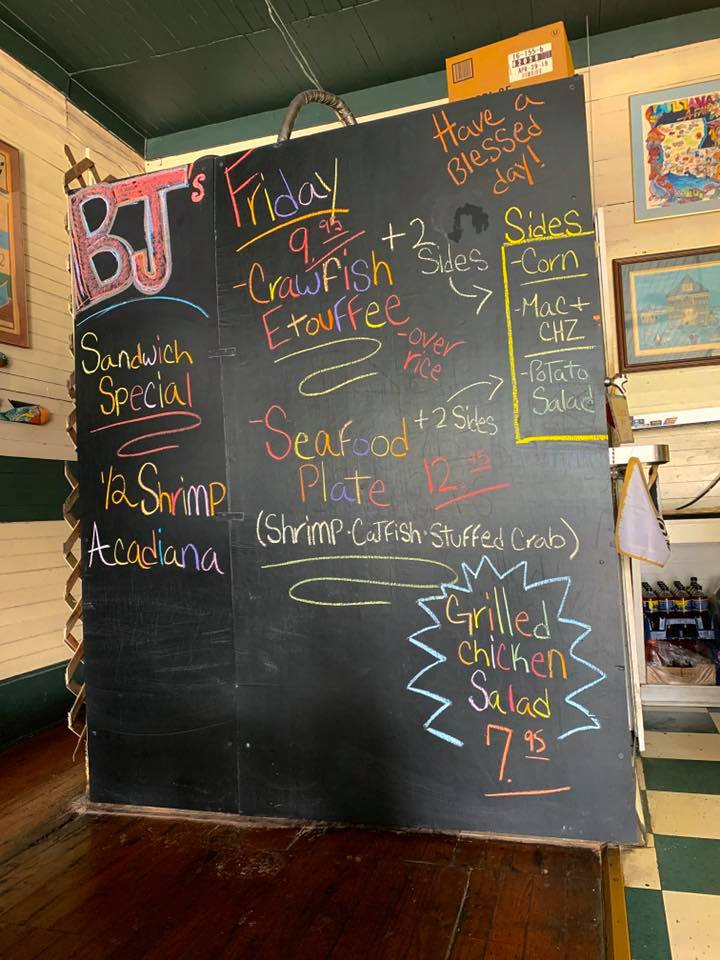 BJ's
Sandwich
Special
1/2 Shrimp
Acadiana
Friday
9.95
-Crawfish
Etouffee
-over
rice
+2
Sides
-Seafood
Plate
+2 Sides
12.95
(Shrimp·Catfish·Stuffed Crab)
Grilled
chicken
Salad
7.95
Have a
Blessed
day!
Sides
-Corn
-Mac+
CHZ
-Potato
Salad
LOUISIANA